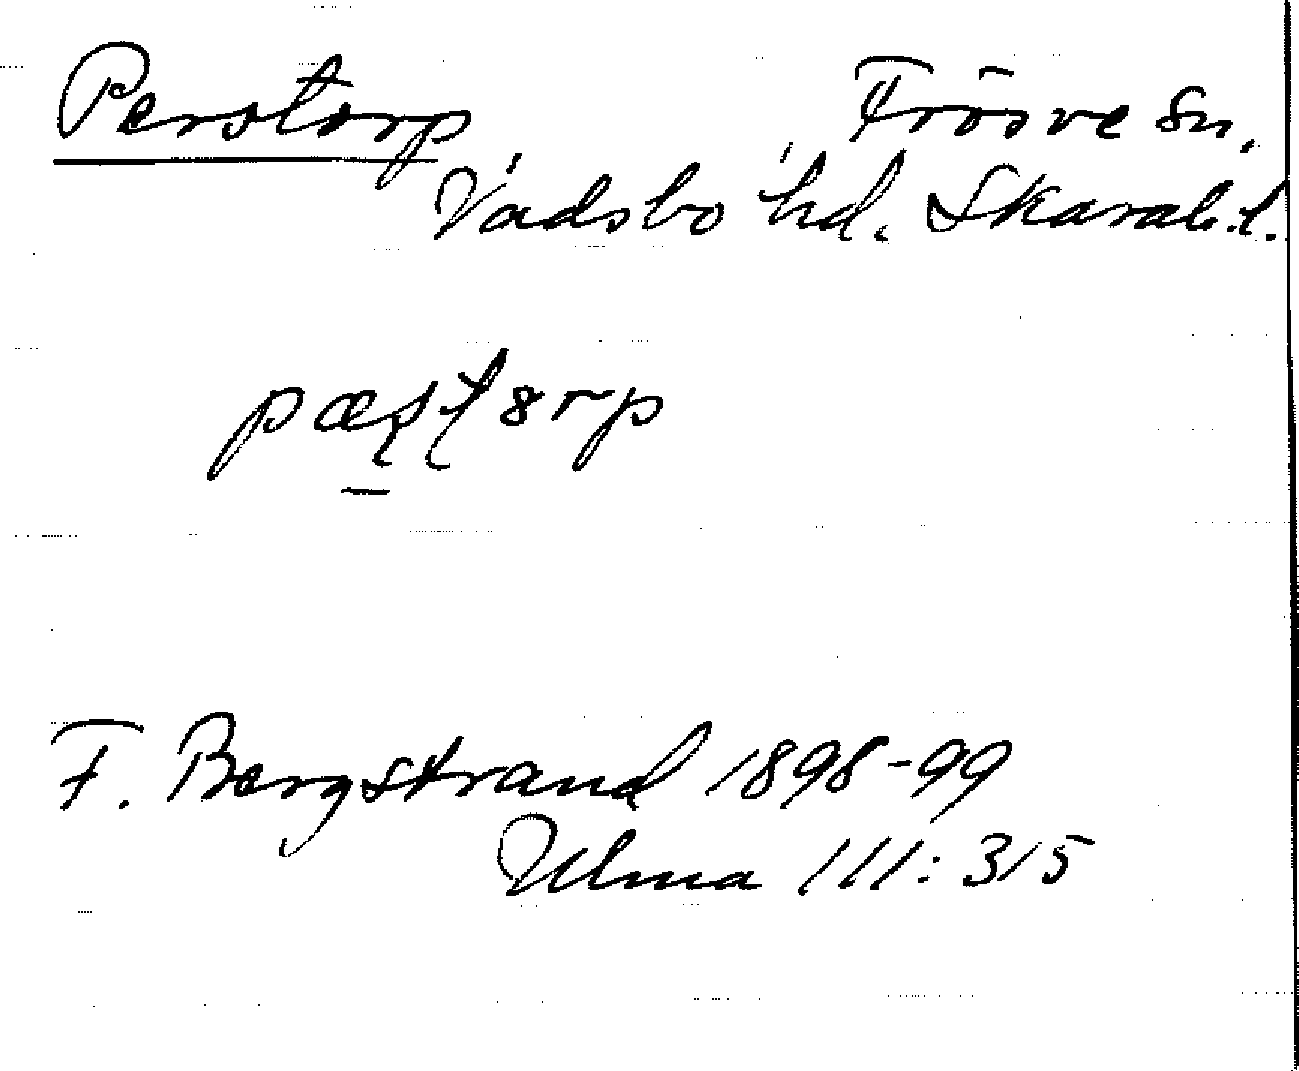 Perstorp Frösve sn.
Vadsbo hd. Skarab.l.
pæʂʈ8rp
F. Bergstrand 1898-99
Ulma 111:315